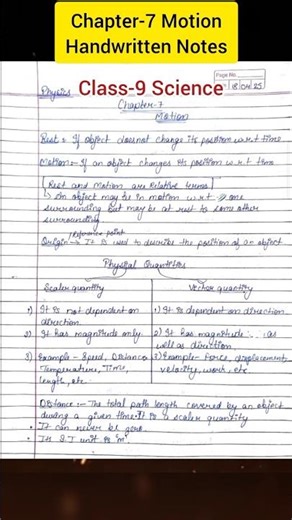 Chapter-7 Motion
Handwritten Notes
Page No.
Physics
Class-9 Science
18/04/25
Chapter-7
Motion
Rest:- If object does not change its position w.r.t time
Motion:- If an object changes its position w.r.t time
[Rest and Motion are Relative terms]
↳ An object may be in motion w.r.t one
surrounding but may be at rest to some other
surrounding.
reference point
Origin → It is used to describe the position of an object
Physical Quantities
Scaler quantity
Vector quantity
1) It is not dependent on
direction
1) It is dependent on direction.
2) It has magnitude only.
2) It has magnitude as
well as direction.
3) Example - Speed, Distance,
Temperature, Time,
length, etc.
3) Example - Force, displacement,
velocity, work, etc
Distance:- The total path length covered by an object
during a given time. It is a scaler quantity
• It can never be zero.
• Its S.I unit is 'm'